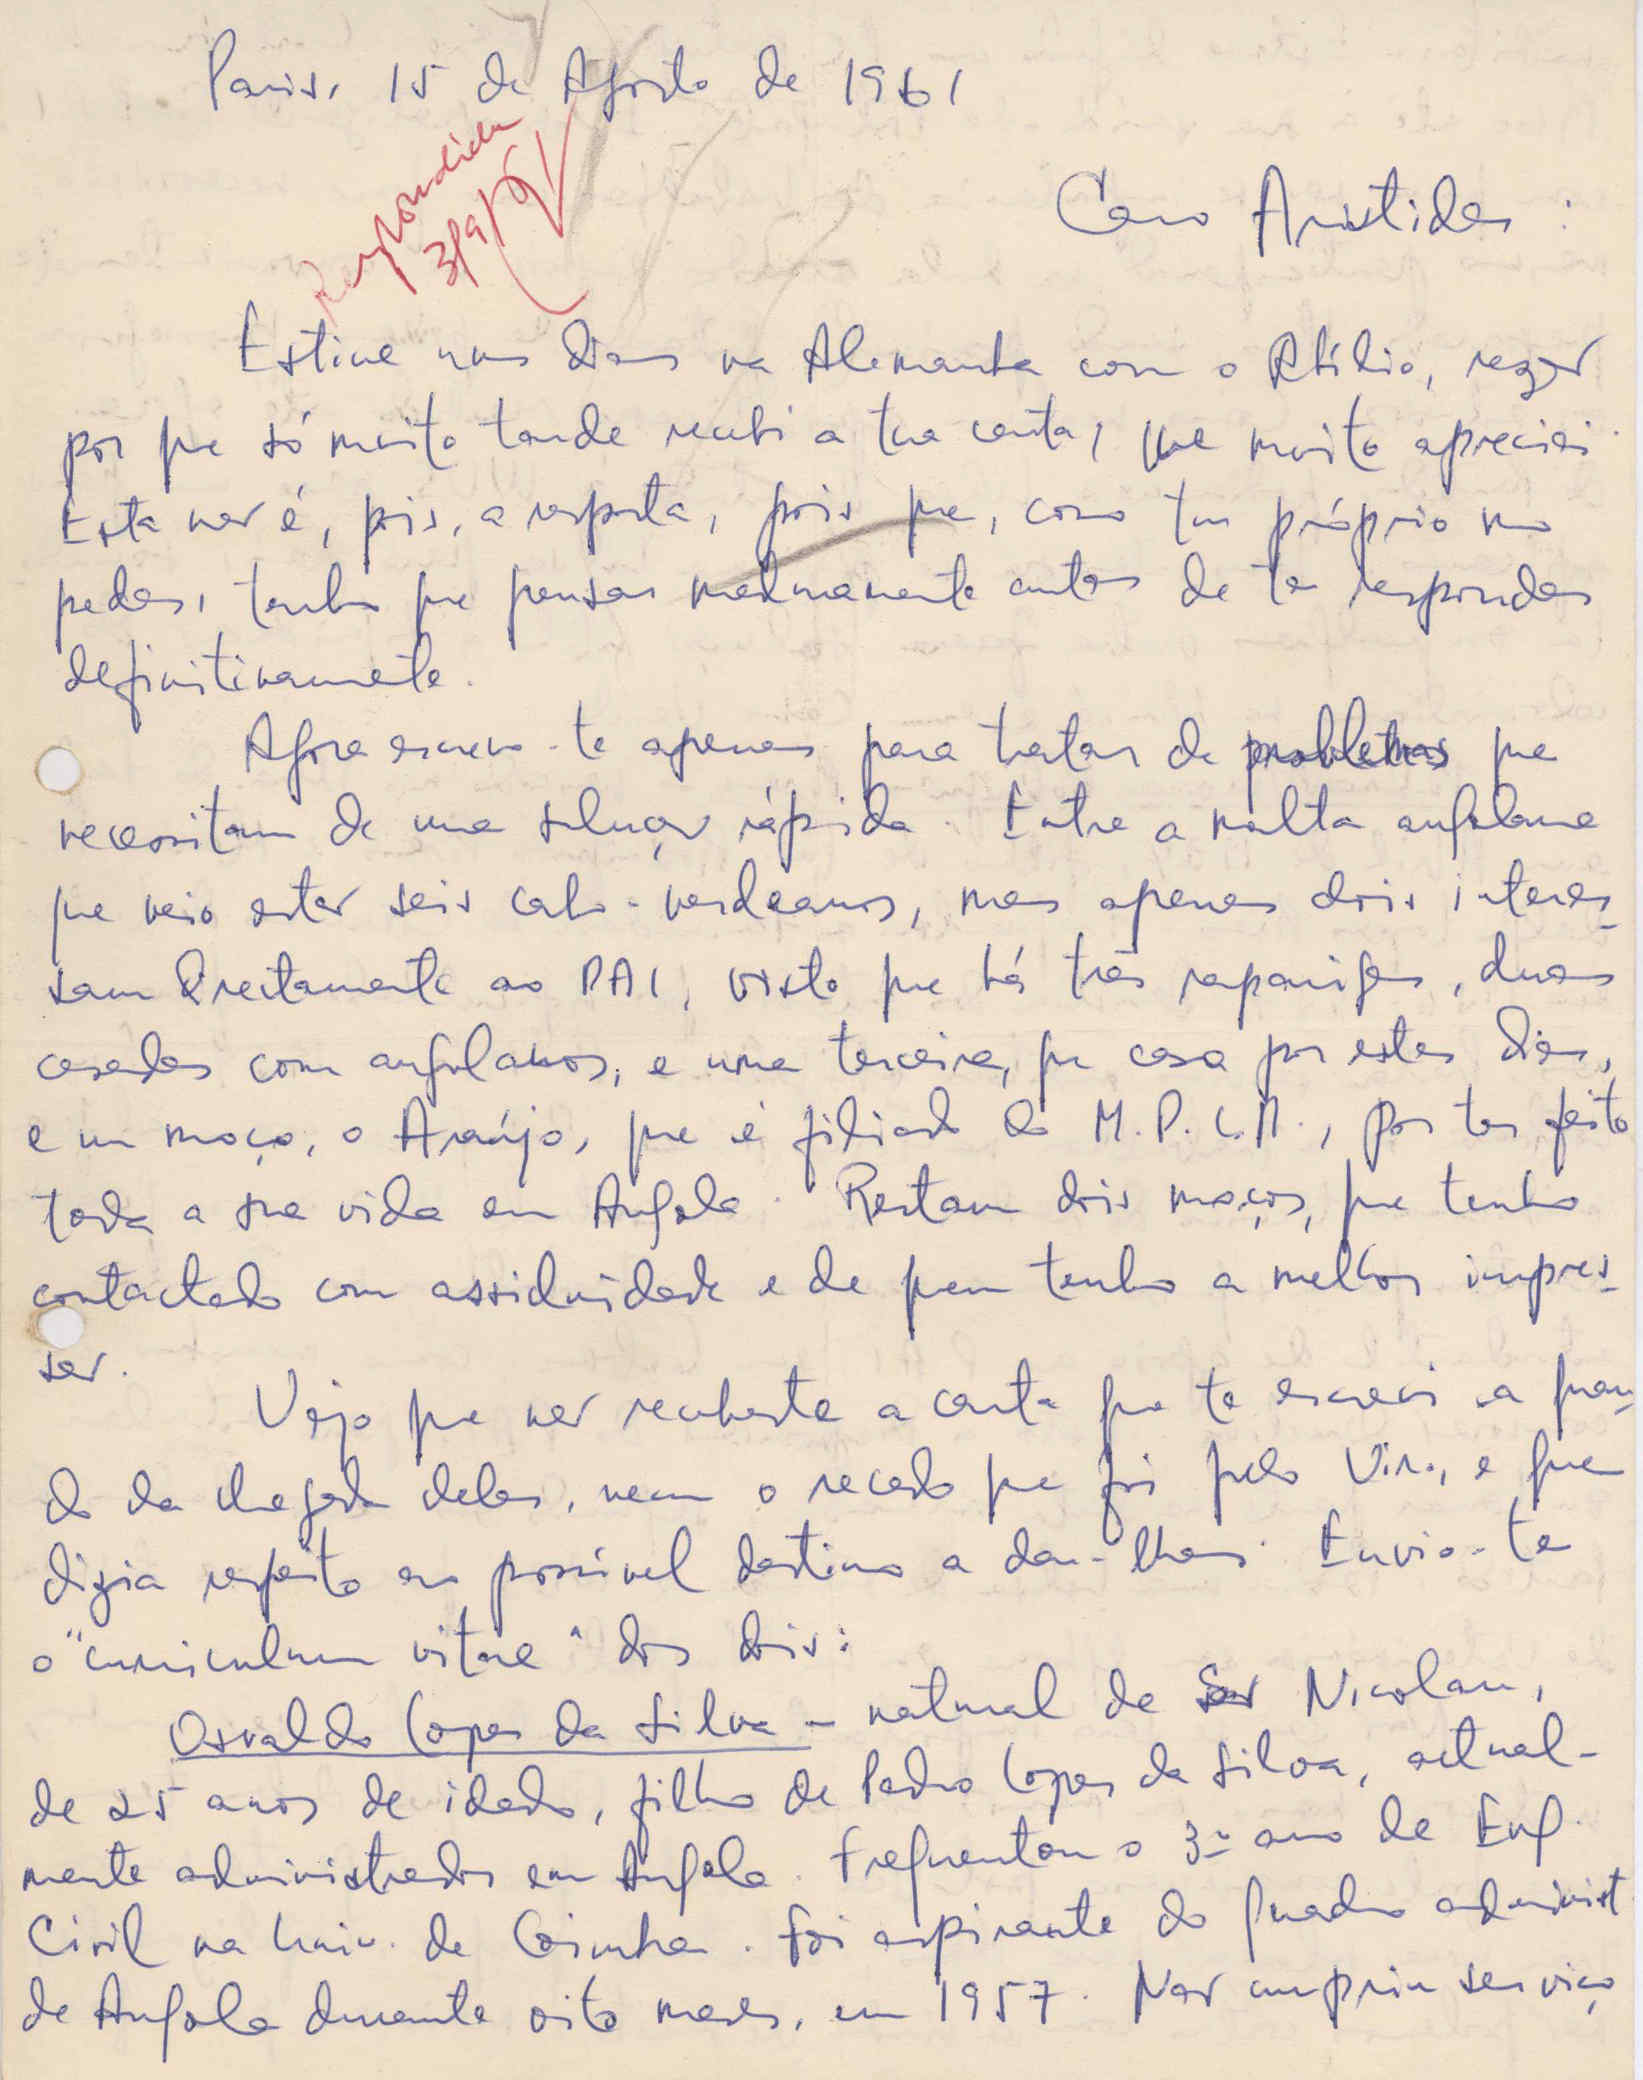 Paris, 15 de Agosto de 1961
Respondida
3/9/61
Caro Aristides :
Estive uns dias na Alemanha com o Abílio, razão
por que só muito tarde recebi a tua carta, que muito apreciei.
Esta não é, pois, a resposta, pois que, como tu próprio me
pedes, tenho que pensar maduramente antes de te responder
definitivamente.
Agora escrevo-te apenas para tratar de problemas que
necessitam de uma solução rápida. Entre a malta angolana
que veio estão seis cabo-verdeanos, mas apenas dois interes-
sam directamente ao PAI, visto que há três raparigas, duas
casadas com angolanos, e uma terceira, que casa por estes dias,
e um moço, o Araújo, que é filiado do M.P.L.A., por ter feito
toda a sua vida em Angola. Restam dois moços, que tenho
contactado com assiduidade e de quem tenho a melhor impres-
são.
Vejo que não recebeste a carta que te escrevi a quan-
do da chegada deles, nem o recado que foi pelo Viri., e que
dizia respeito ao possível destino a dar-lhes. Envio-te
o "curriculum vitae" dos dois:
Osvaldo Lopes da Silva - natural de São Nicolau,
de 25 anos de idade, filho de Pedro Lopes da Silva, actual-
mente administrador em Angola. Frequentou o 3º ano de Eng.
Civil na Univ. de Coimbra. Foi aspirante do Quadro administ.
de Angola durante oito meses, em 1957. Não cumpriu serviço